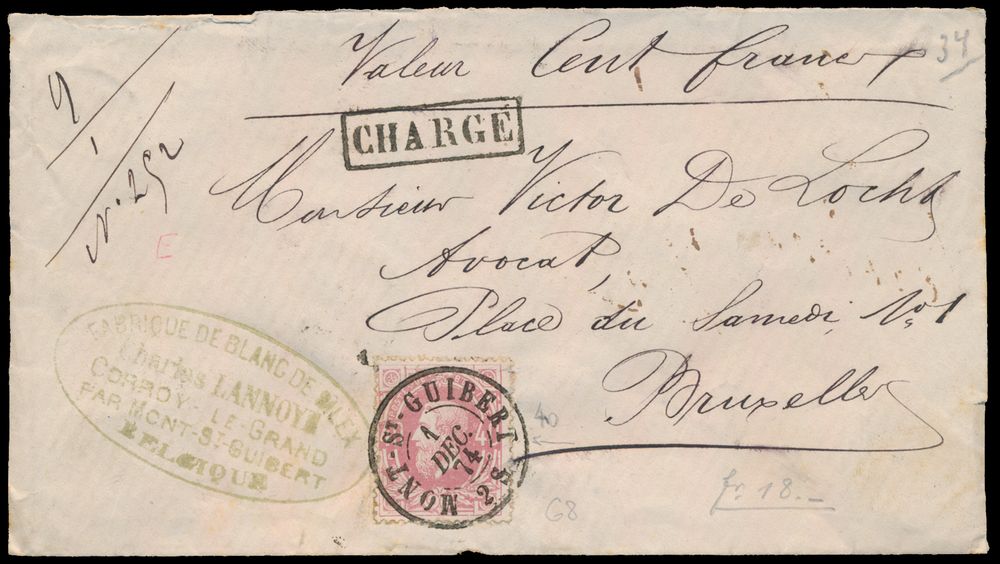 Valeur Cent francs
34
CHARGÉ
9
1
N. 252
E
Monsieur Victor De Locht
Avocat,
Place du Samedi, No. 1
Bruxelles
FABRIQUE DE BLANC DE SILEX
Charles LANNOYE
CORROY-LE-GRAND
PAR MONT-ST-GUIBERT
BELGIQUE
MONT-ST-GUIBERT
1
DEC.
74
2 S
40
G8
fr 18.-